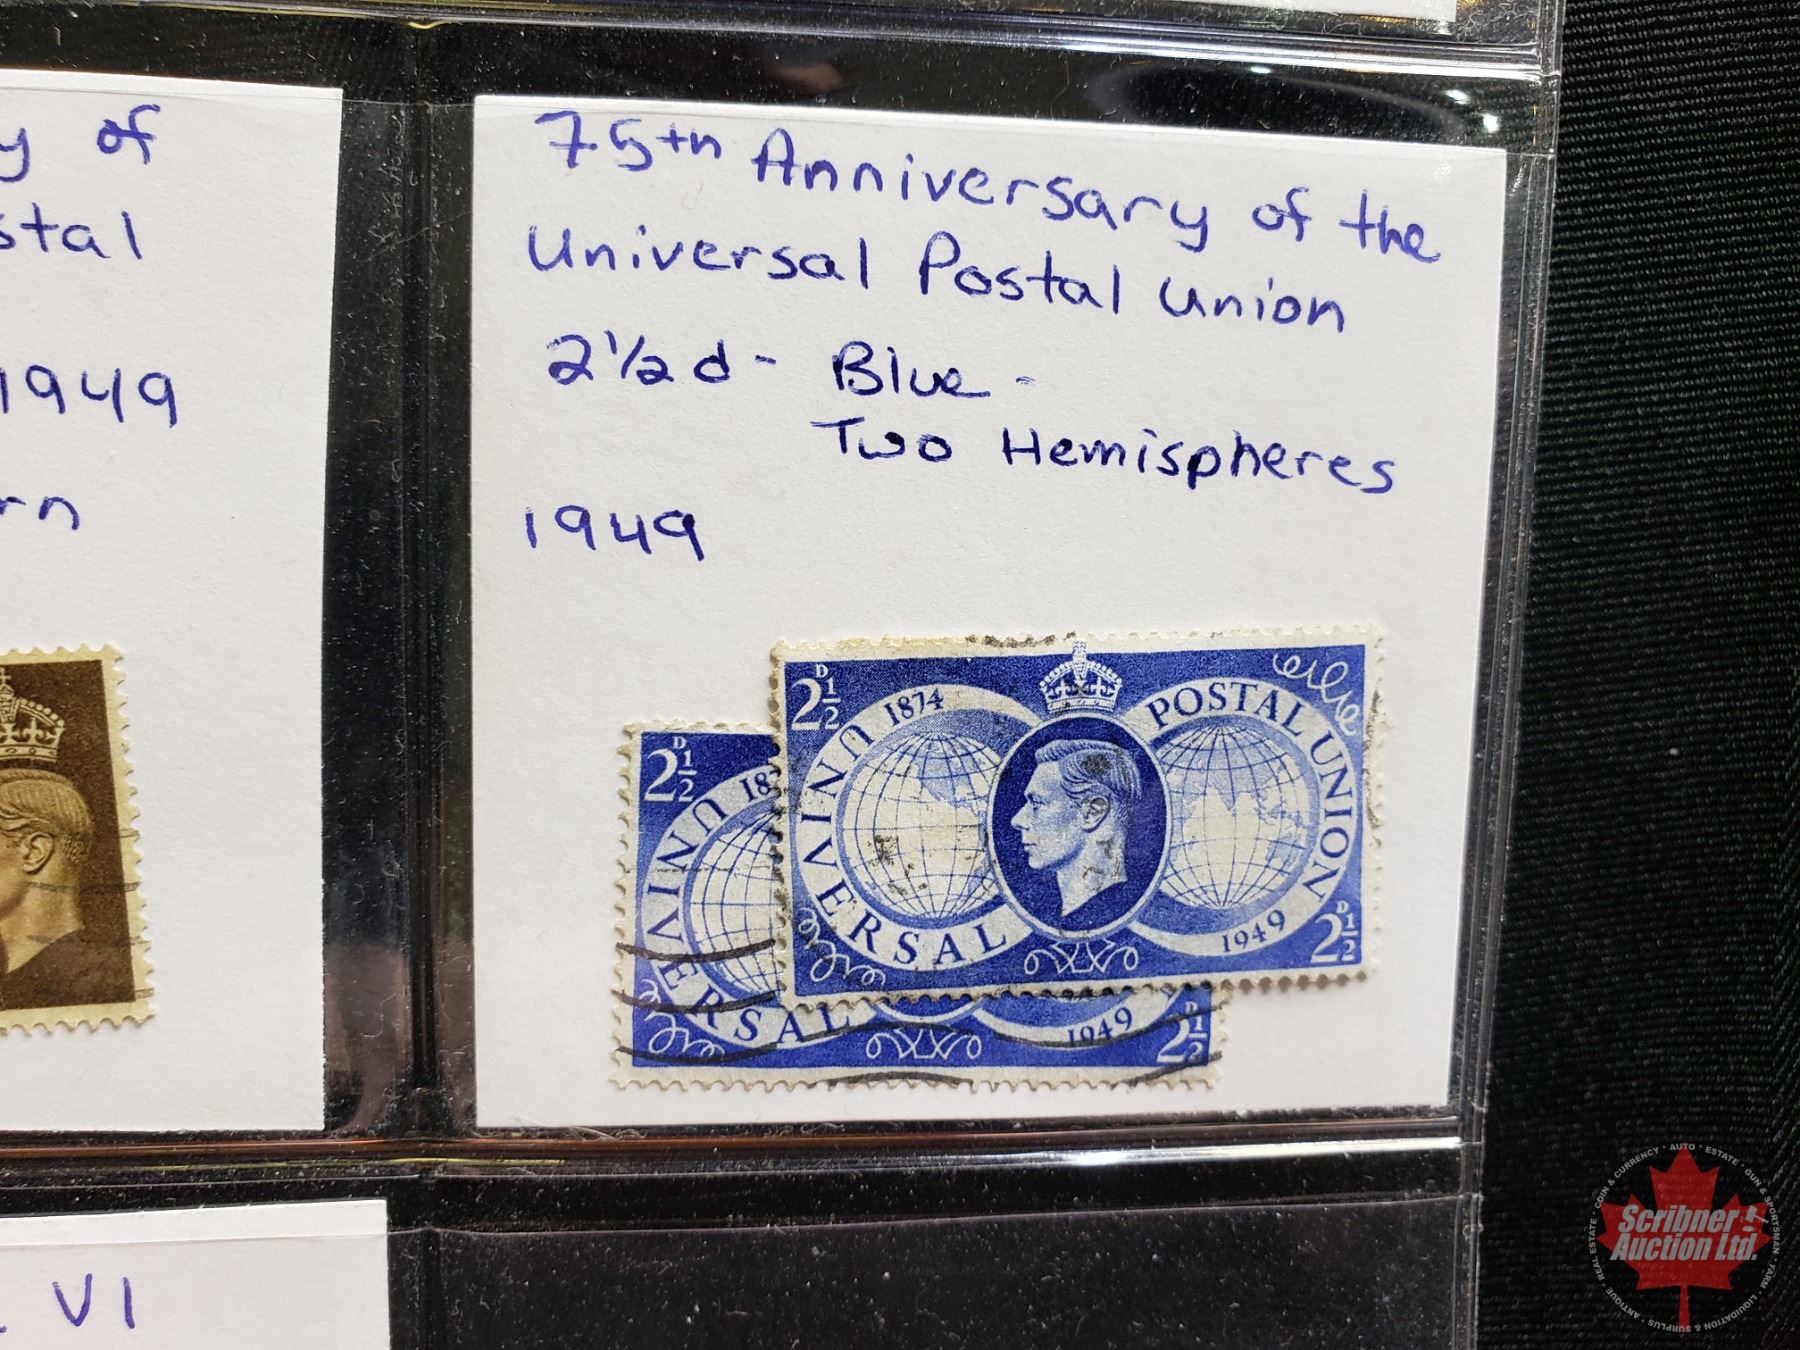 y of
stal
1949
rn
75th Anniversary of the
Universal Postal Union
2 1/2 d - Blue -
Two Hemispheres
1949
2 1/2 D
1874
UNIVERSAL
POSTAL UNION
1949
2 1/2 D
2 1/2 D
187
UNIVERSAL
1949
2 1/2 D
VI
Scribner!
Auction Ltd.
ANTIQUE · REAL ESTATE · COIN & CURRENCY · AUTO · ESTATE · GUN & SPORTSMAN · FARM · LIQUIDATION & SURPLUS ·